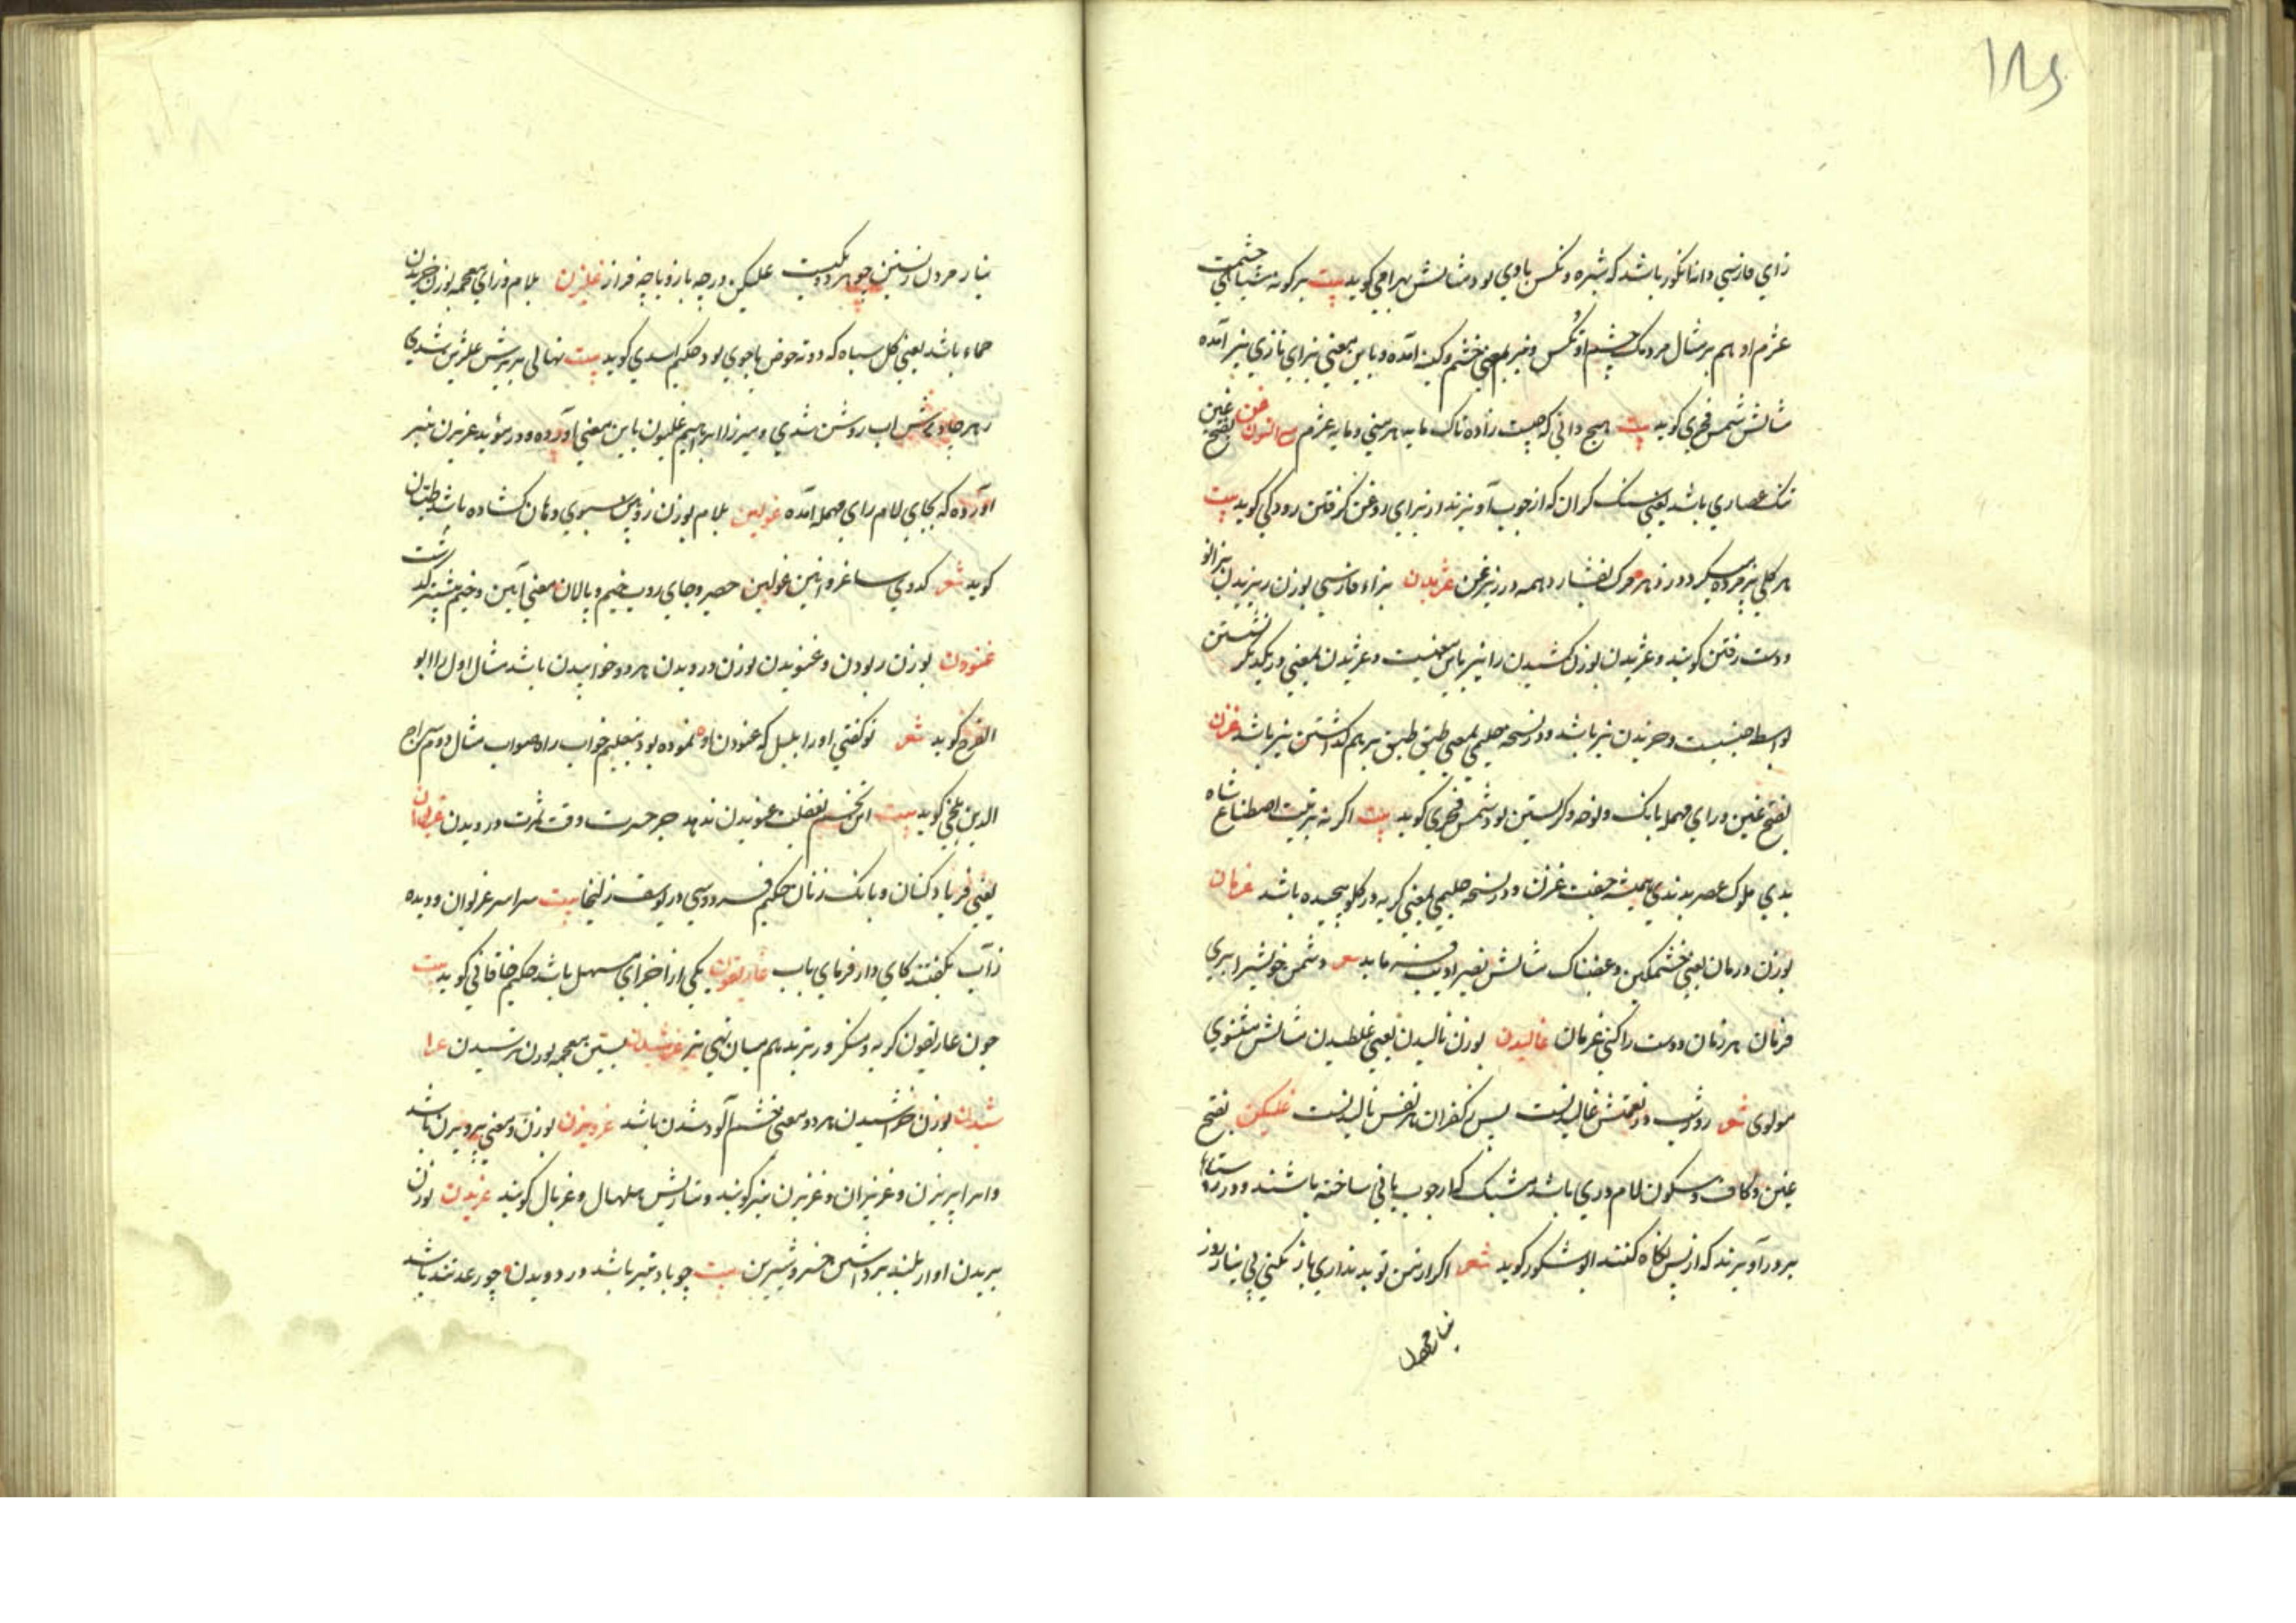 ۱۸۶
زای فارسی دانه انکور باشد که شیره و تکس باوی بود مثالش بهرامی کوید بیت هر کونه سیاهی چشمت
غژم او هم بر مثال مردمک چشم او تکس و نیز بمعنی خشم و کینه آمده و باین معنی بزای تازی نیز آمده
مثالش شمس فخری کوید بیت هیچ دانی که چیست زاده تاک مایه هر منی و مایه غژم مع النون غن بفتح غین
تنک عصاری باشد یعنی سنک کران که از چوب آویزند از برای روغن کرفتن رودکی کوید بیت
هر کلی پژمرده میکردد زو مرک بفشارد همه در زیر غن غژیدن بزاء فارسی بوزن بزانو
و دست رفتن کویند و غژیدن بوزن کشیدن را نیز باین معنیست و غژیدن بمعنی در یکدیکر نشستن
بواسطه جنسیت و خزیدن نیز باشد و در نسخه حلیمی بمعنی طبق طبق بر هم کذاشتن نیز باشد غرن
بفتح غین و رای مهمله بانک و نوحه و کریستن بود شمس فخری کوید بیت اکر نه تربیت اصطناع شاه
بدی ملوک عصر بدندی همیشه جفت غرن و در نسخه حلیمی بمعنی کریه در کلو پیچیده باشد غرمان
بوزن درمان یعنی خشمکین و غضبناک مثالش نصیر ادیب فرماید شعر دشمن خویش را بری
فرمان هر زمان دوست را کنی غرمان غالیدن بوزن نالیدن یعنی غلطیدن مثالش مثنوی
مولوی شعر روز و شب در نعمتش غالیدنست پس ز کفران هر نفس نالیدنست غلیکن بفتح
غین و کاف و سکون لام دری باشد مشبک که از چوب یا نی ساخته باشند و در روستاها
بر در آویزند که از پس نکاه کنند ابوشکور کوید شعر اکر از من تو بد نداری باز نکنی بی نیاز روز
نیاز
نیاز مردن و زیستن چو هر دو یکیست غلیکن در چه باز و یا چه فراز غلیزن بلام و زای معجمه بوزن خریدن
حماء باشد یعنی کل سیاه که در ته حوض یا جوی بود حکیم اسدی کوید بیت نهالی بزیرش غلیزن شدی
زهر جادویش آب روشن شدی و میرزا ابراهیم غلیون باین معنی آورده و در مؤید غریزن نیز
آورده که بجای لام رای مهمله آمده غولین بلام بوزن زوبین سبوی دهان کشاده باشد طیان
کوید شعر کدوی ساغر و ازین غولین حصیر و جای روب خیم و پالان معنی این و خیم پیشتر کذشت
غنودن بوزن ربودن و غنویدن بوزن درویدن هر دو خوابیدن باشد مثال اول را ابو
الفرج کوید شعر تو کفتی اورا بلبل که غنودن او نمود بود بتعلیم خواب راه صواب مثال دوم سراج
الدین بلخی کوید بیت این تخم بغفلت غنویدن ندهد جز حسرت وقت درویدن غریوان
یعنی فریاد کنان و بانک زنان حکیم فردوسی در یوسف زلیخا بیت سراسر غریوان و دیده
ز آب بکفتند کای دار فرمای باب غاریقون یکی از اجزای مسهل باشد حکیم خاقانی کوید بیت
چون غاریقون کریه و منکر و ریزیده هم میان تهی نیز غرشیدن بشین معجمه بوزن ترسیدن غرا
شیدن بوزن خراشیدن هر دو بمعنی خشم آلود شدن باشد غرویزن بوزن و معنی پرویزن باشد
و انرا پریزن و غریزان و غریزن نیز کویند و بتازیش هلهال و غربال کویند غریدن بوزن
بریدن آواز بلند برداشتن خسرو شیرین بیت چو باد تیز باشد در دویدن چو رعد تند باشد